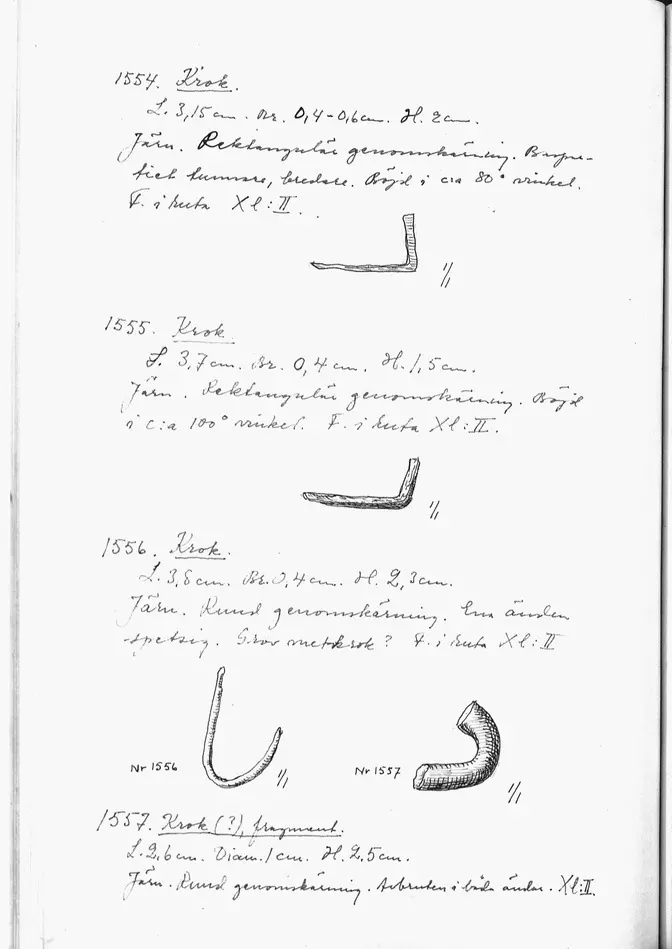 1554. Krok.
L. 3,15 cm. Br. 0,4-0,6 cm. H. 2 cm.
Järn. Rektangulär genomskärning.
tiet tunnare, bredare. Böjd i c:a 80° vinkel.
F. i ruta Xl:II.
1/1
1555. Krok
L. 3,7 cm. Br. 0,4 cm. H. 1,5 cm.
Järn. Rektangulär genomskärning. Böjd
i c:a 100° vinkel. F. i ruta Xl:II.
1/1
1556. Krok.
L. 3,8 cm. Br. 0,4 cm. H. 2,3 cm.
Järn. Rund genomskärning. Ena änden
spetsig. Grov metkrok? F. i ruta Xl:II
Nr 1556 1/1 Nr 1557 1/1
1557. Krok (?), fragment.
L. 2,6 cm. Diam. 1 cm. H. 2,5 cm.
Järn. Rund genomskärning. Avbruten i båda ändar. Xl:II.